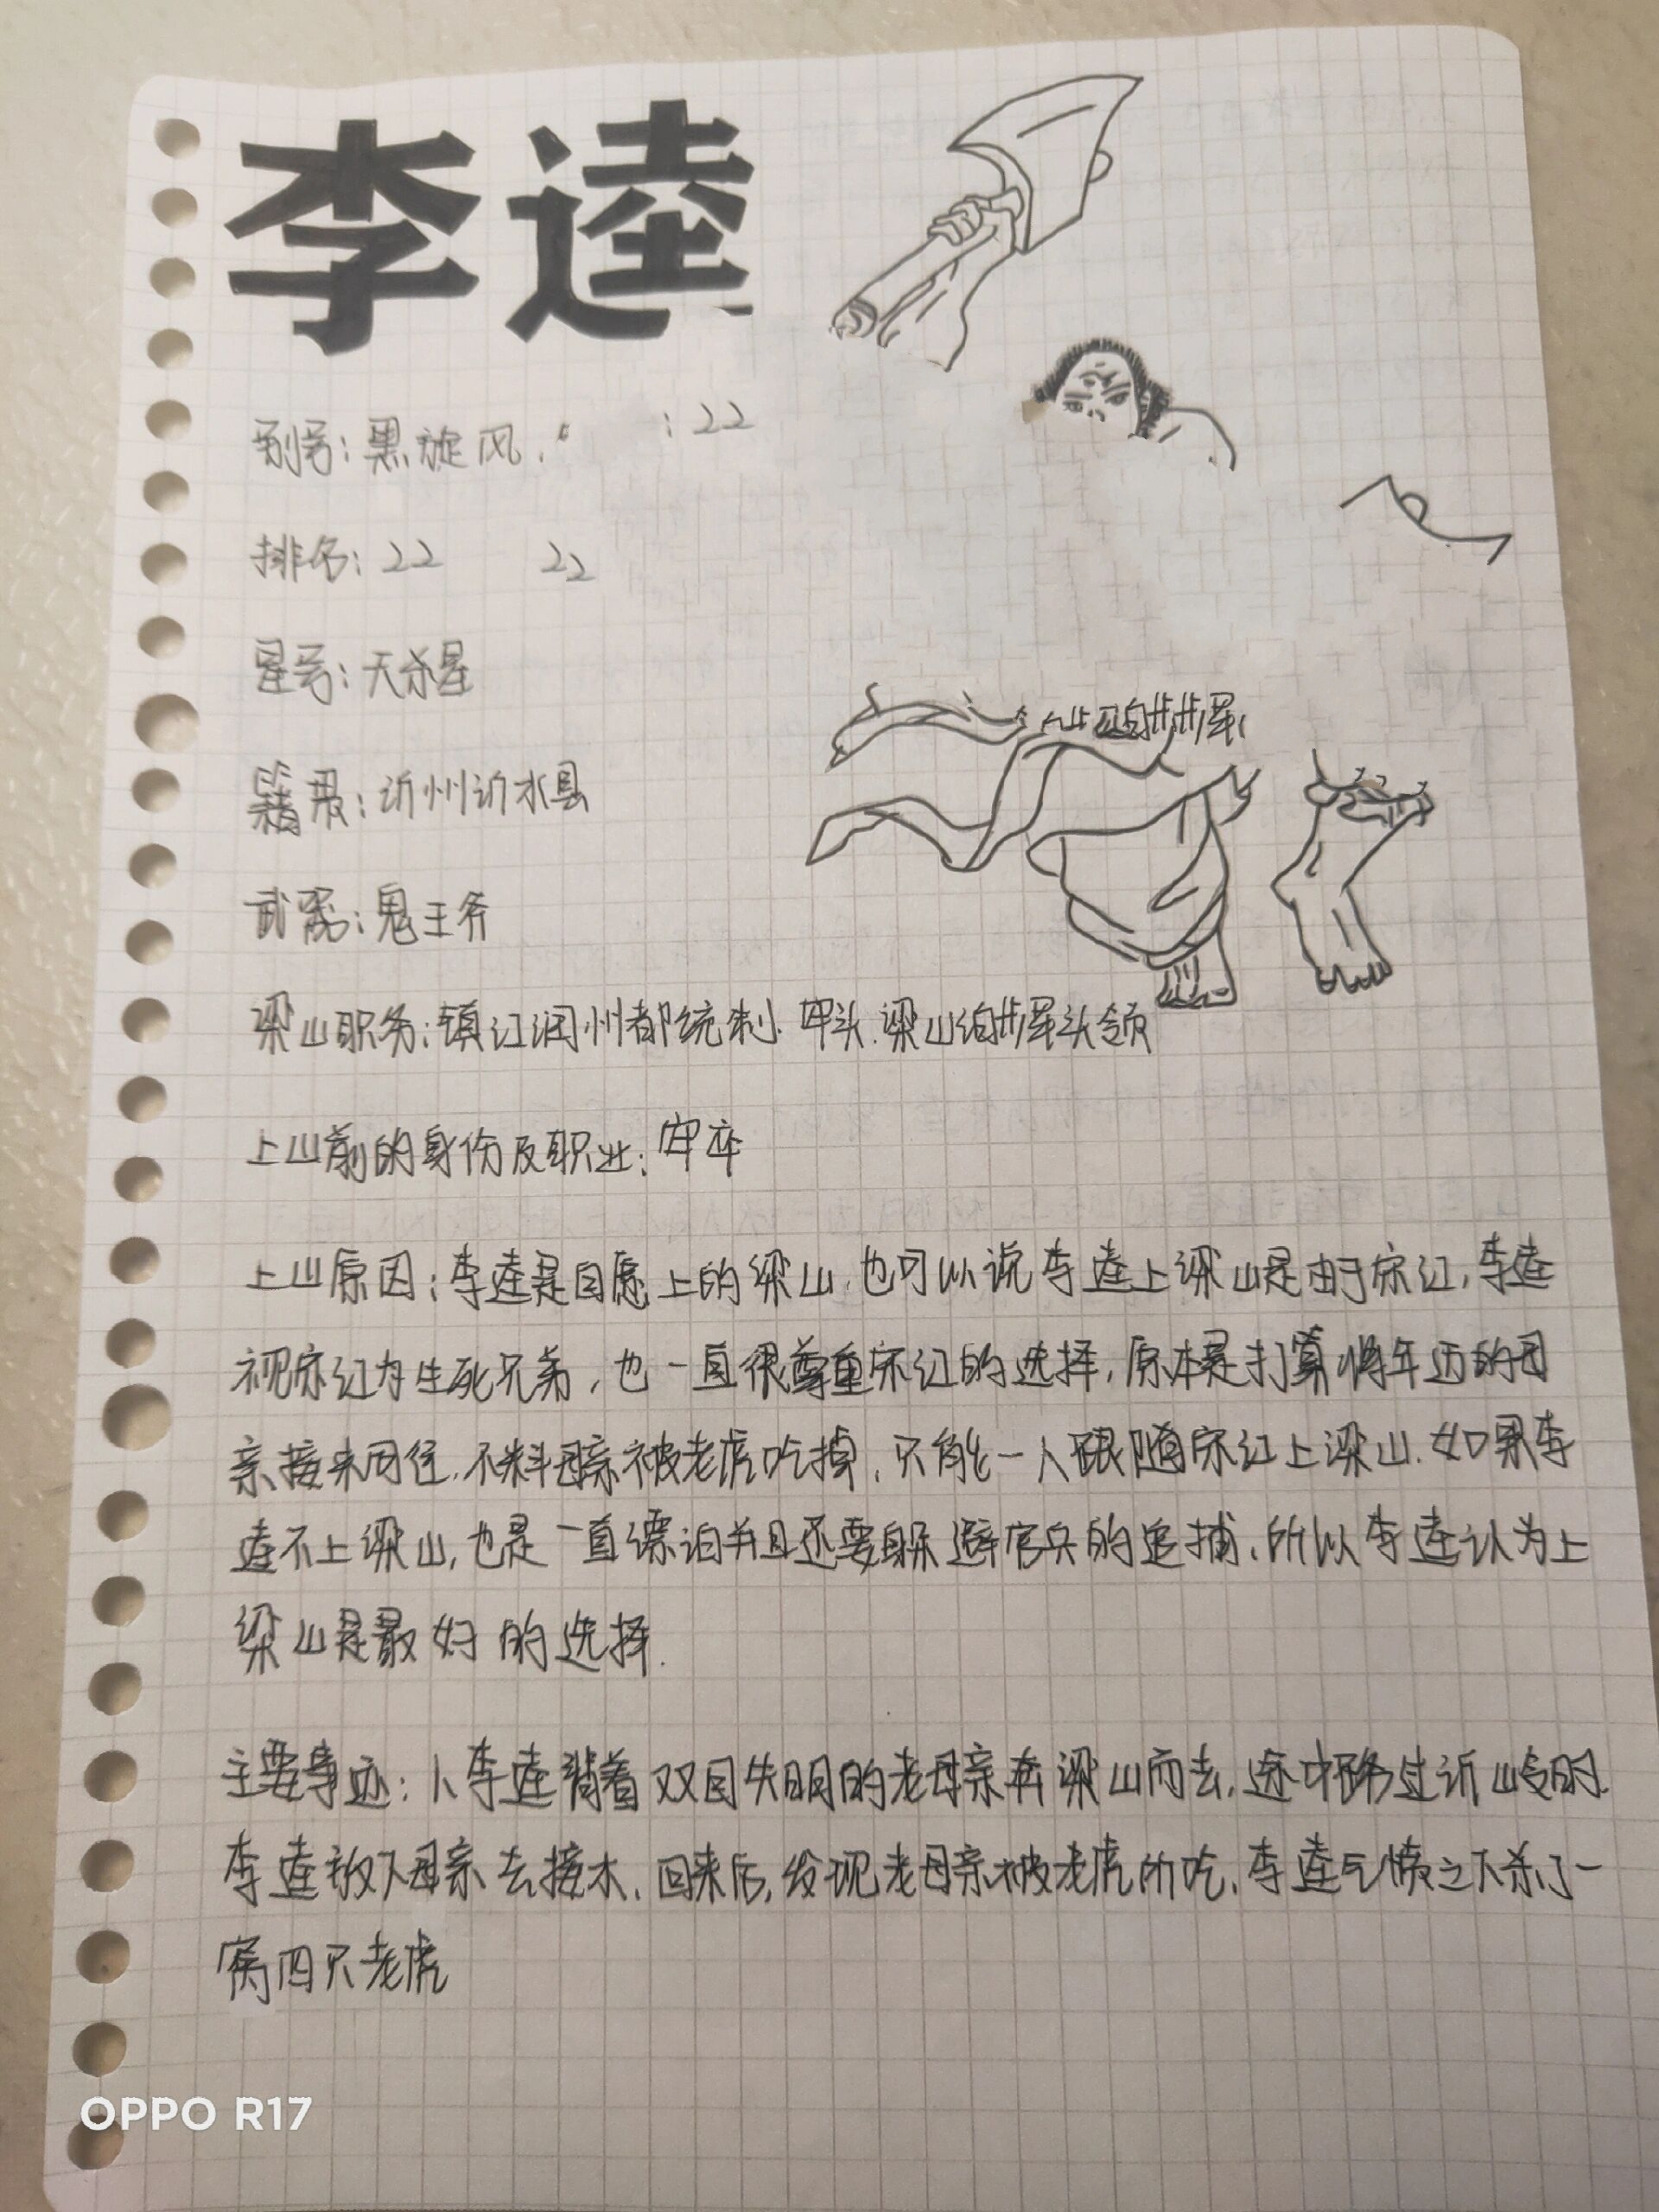 李逵
别号：黑旋风.“ ：22
排名：22 22
星号：天杀星
籍贯：沂州沂水县
武器：鬼王斧
梁山职务：镇江润州都统制.牢头.梁山泊步军头领
上山前的身份及职业：牢卒
上山原因：李逵是自愿上的梁山，也可以说李逵上梁山是由于宋江，李逵
视宋江为生死兄弟，也一直很尊重宋江的选择，原本是打算将年迈的母
亲接来同住，不料母亲被老虎吃掉，只能一人跟随宋江上梁山.如果李
逵不上梁山，也是一直漂泊并且还要躲避官兵的追捕，所以李逵认为上
梁山是最好的选择.
主要事迹：1、李逵背着双目失明的老母亲奔梁山而去，途中路过沂岭时.
李逵放下母亲去接水，回来后，发现老母亲被老虎所吃，李逵气愤之下杀了一
窝四只老虎
OPPO R17